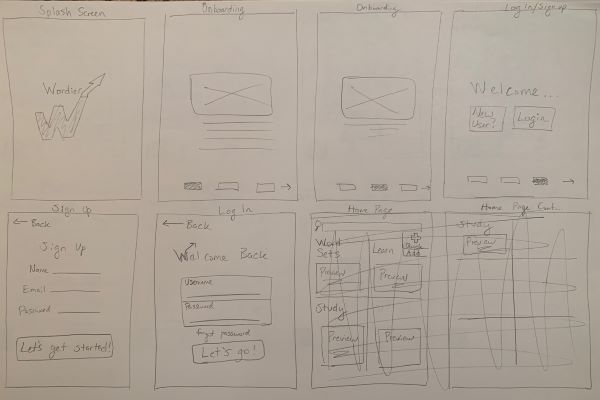 Splash Screen
Wordier
W
Onboarding
Onboarding
Log In/Sign up
Welcome...
New
User?
Login
Sign Up
← Back
Sign Up
Name
Email
Password
Let's get started!
Log In
← Back
Welcome Back
Username
Password
forgot password
Let's go!
Home Page
Word
Sets
Learn
Quick
Add
Preview
Preview
Study
Preview
Preview
Home Page Cont.
Study
Preview